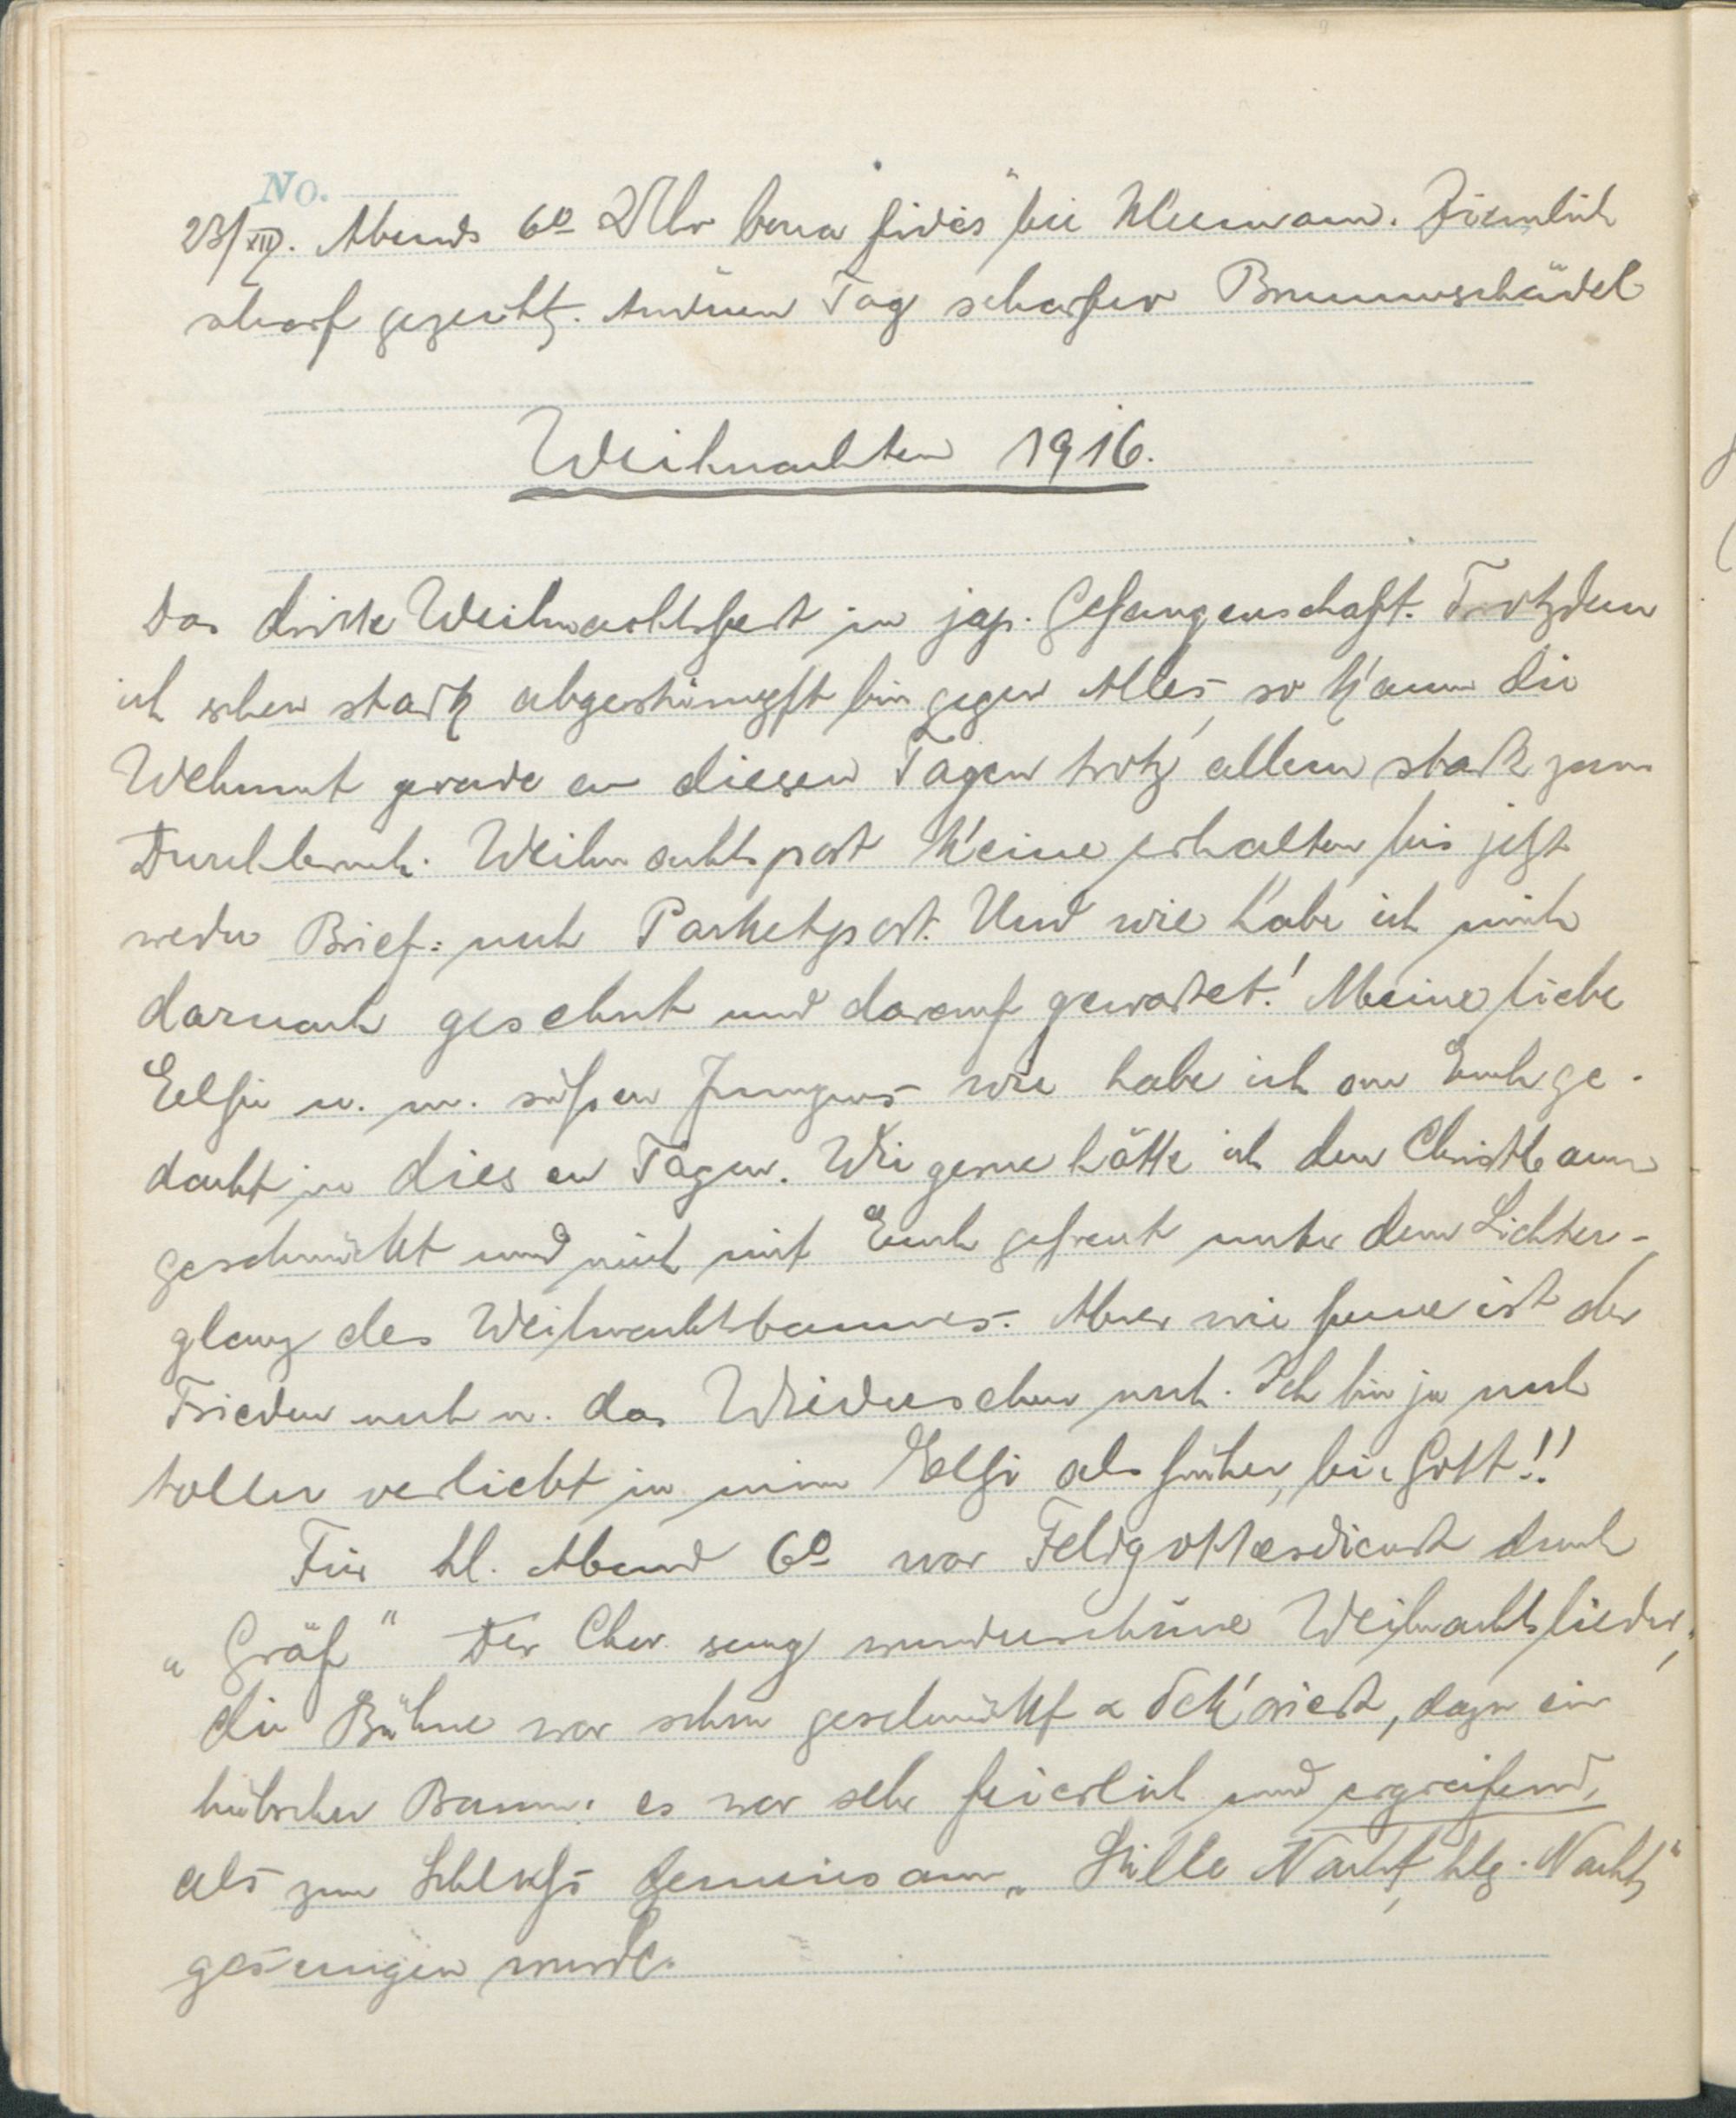 No.
23/XII. Abends 6º Uhr bona fides bei Kleemann. Ziemlich
scharf gezecht. Andren Tag scharfer Brummschädel
Weihnachten 1916.
Das dritte Weihnachtsfest in jap. Gefangenschaft. Trotzdem
ich schon stark abgestumpft bin gegen Alles, so kam die
Wehmut gerade an diesen Tagen trotz allem stark zum
Durchbruch. Weihnachtspost keine erhalten bis jetzt
weder Brief= noch Packetpost. Und wie habe ich mich
darnach gesehnt und darauf gewartet! Meine liebe
Elsi u. m. süßen Jungens wie habe ich an Euch ge-
dacht in diesen Tagen. Wie gerne hätte ich den Christbaum
geschmückt und mich mit Euch gefreut unter dem Lichter-
glanz des Weihnachtsbaumes. Aber wie ferne ist der
Frieden noch u. das Wiedersehen noch. Ich bin ja noch
toller verliebt in mein Elsi als früher, bei Gott!!
Für hl. Abend 6º war Feldgottesdienst durch
„Gräf" Der Chor sang wunderschöne Weihnachtslieder,
die Bühne war schön geschmückt & dekoriert, dazu ein
hübscher Baum. es war sehr feierlich und ergreifend,
als zum Schluß gemeinsam „Stille Nacht, hlg. Nacht"
gesungen wurde.